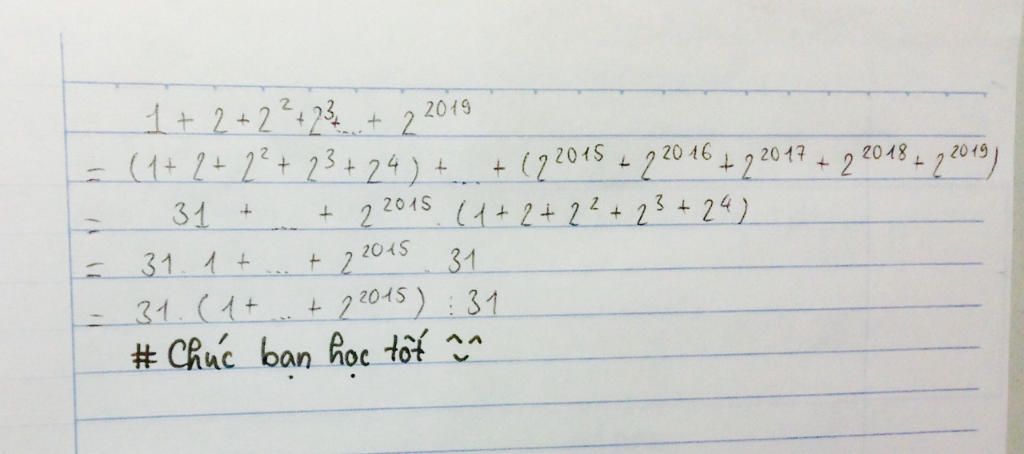 1 + 2 + 2² + 2³ + ... + 2²⁰¹⁹
= (1 + 2 + 2² + 2³ + 2⁴) + ... + (2²⁰¹⁵ + 2²⁰¹⁶ + 2²⁰¹⁷ + 2²⁰¹⁸ + 2²⁰¹⁹)
= 31 + ... + 2²⁰¹⁵ . (1 + 2 + 2² + 2³ + 2⁴)
= 31 . 1 + ... + 2²⁰¹⁵ . 31
= 31 . (1 + ... + 2²⁰¹⁵) ⋮ 31
# Chúc bạn học tốt ^‿^